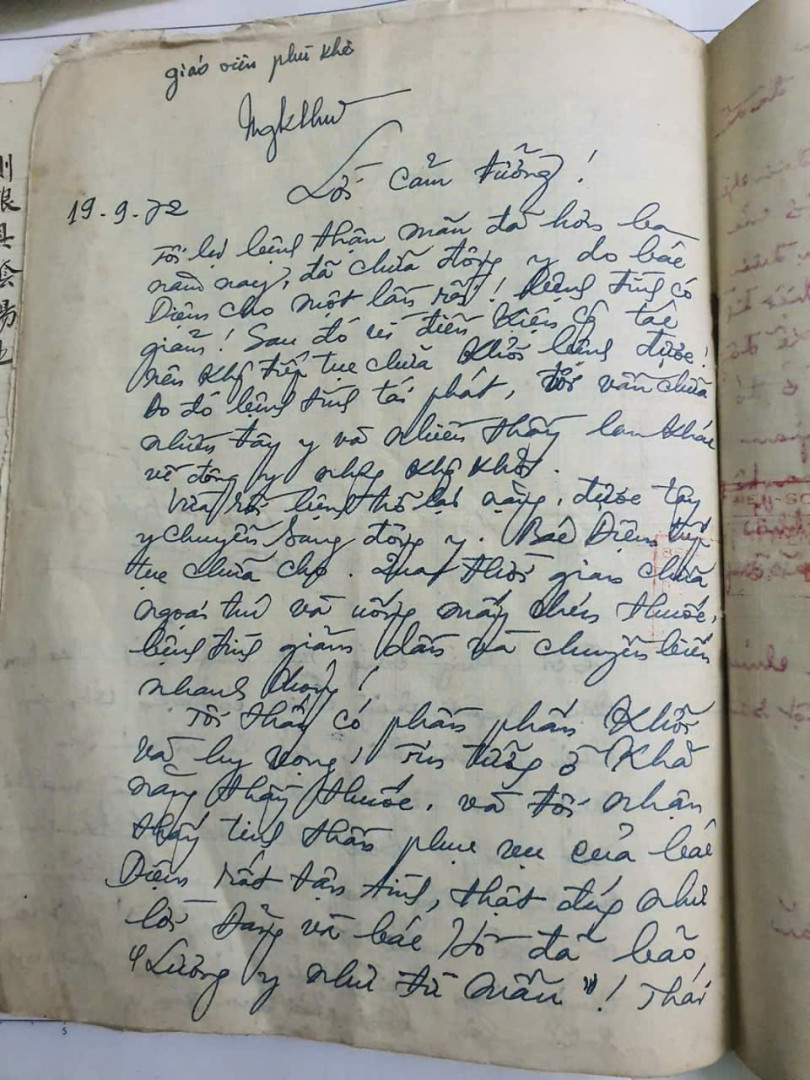 giáo viên phù khê
NgKhư
Lời cảm tưởng!
19.9.72
Tôi bị bệnh thận mãn đã hơn ba
năm nay, đã chữa đông y do bác
Diệm cho một lần rồi! Bệnh tình có
giảm! Sau đó vì điều kiện công tác
nên khg tiếp tục chữa khỏi bệnh được!
Do đó bệnh tình tái phát, tôi vẫn chữa
nhiều tây y và nhiều thầy lang khác
về đông y nhưg khg khỏi.
Vừa rồi bệnh trở lại nặng, được tây
y chuyển sang đông y. Bác Diệm tiếp
tục chữa cho. Qua thời gian chữa
ngoại trú và uống mấy chén thuốc,
bệnh tình giảm dần và chuyển biến
nhanh chóng!
Tôi thấy có phần phấn khởi
và hy vọng! Tin tưởng ở khả
năng thầy thuốc. Và tôi nhận
thấy tinh thần phục vụ của bác
Diệm rất tận tình, thật đúng như
lời Đảng và bác Hồ đã bảo,
"Lương y như từ mẫu"! Thái
則
具
陰
陽
也